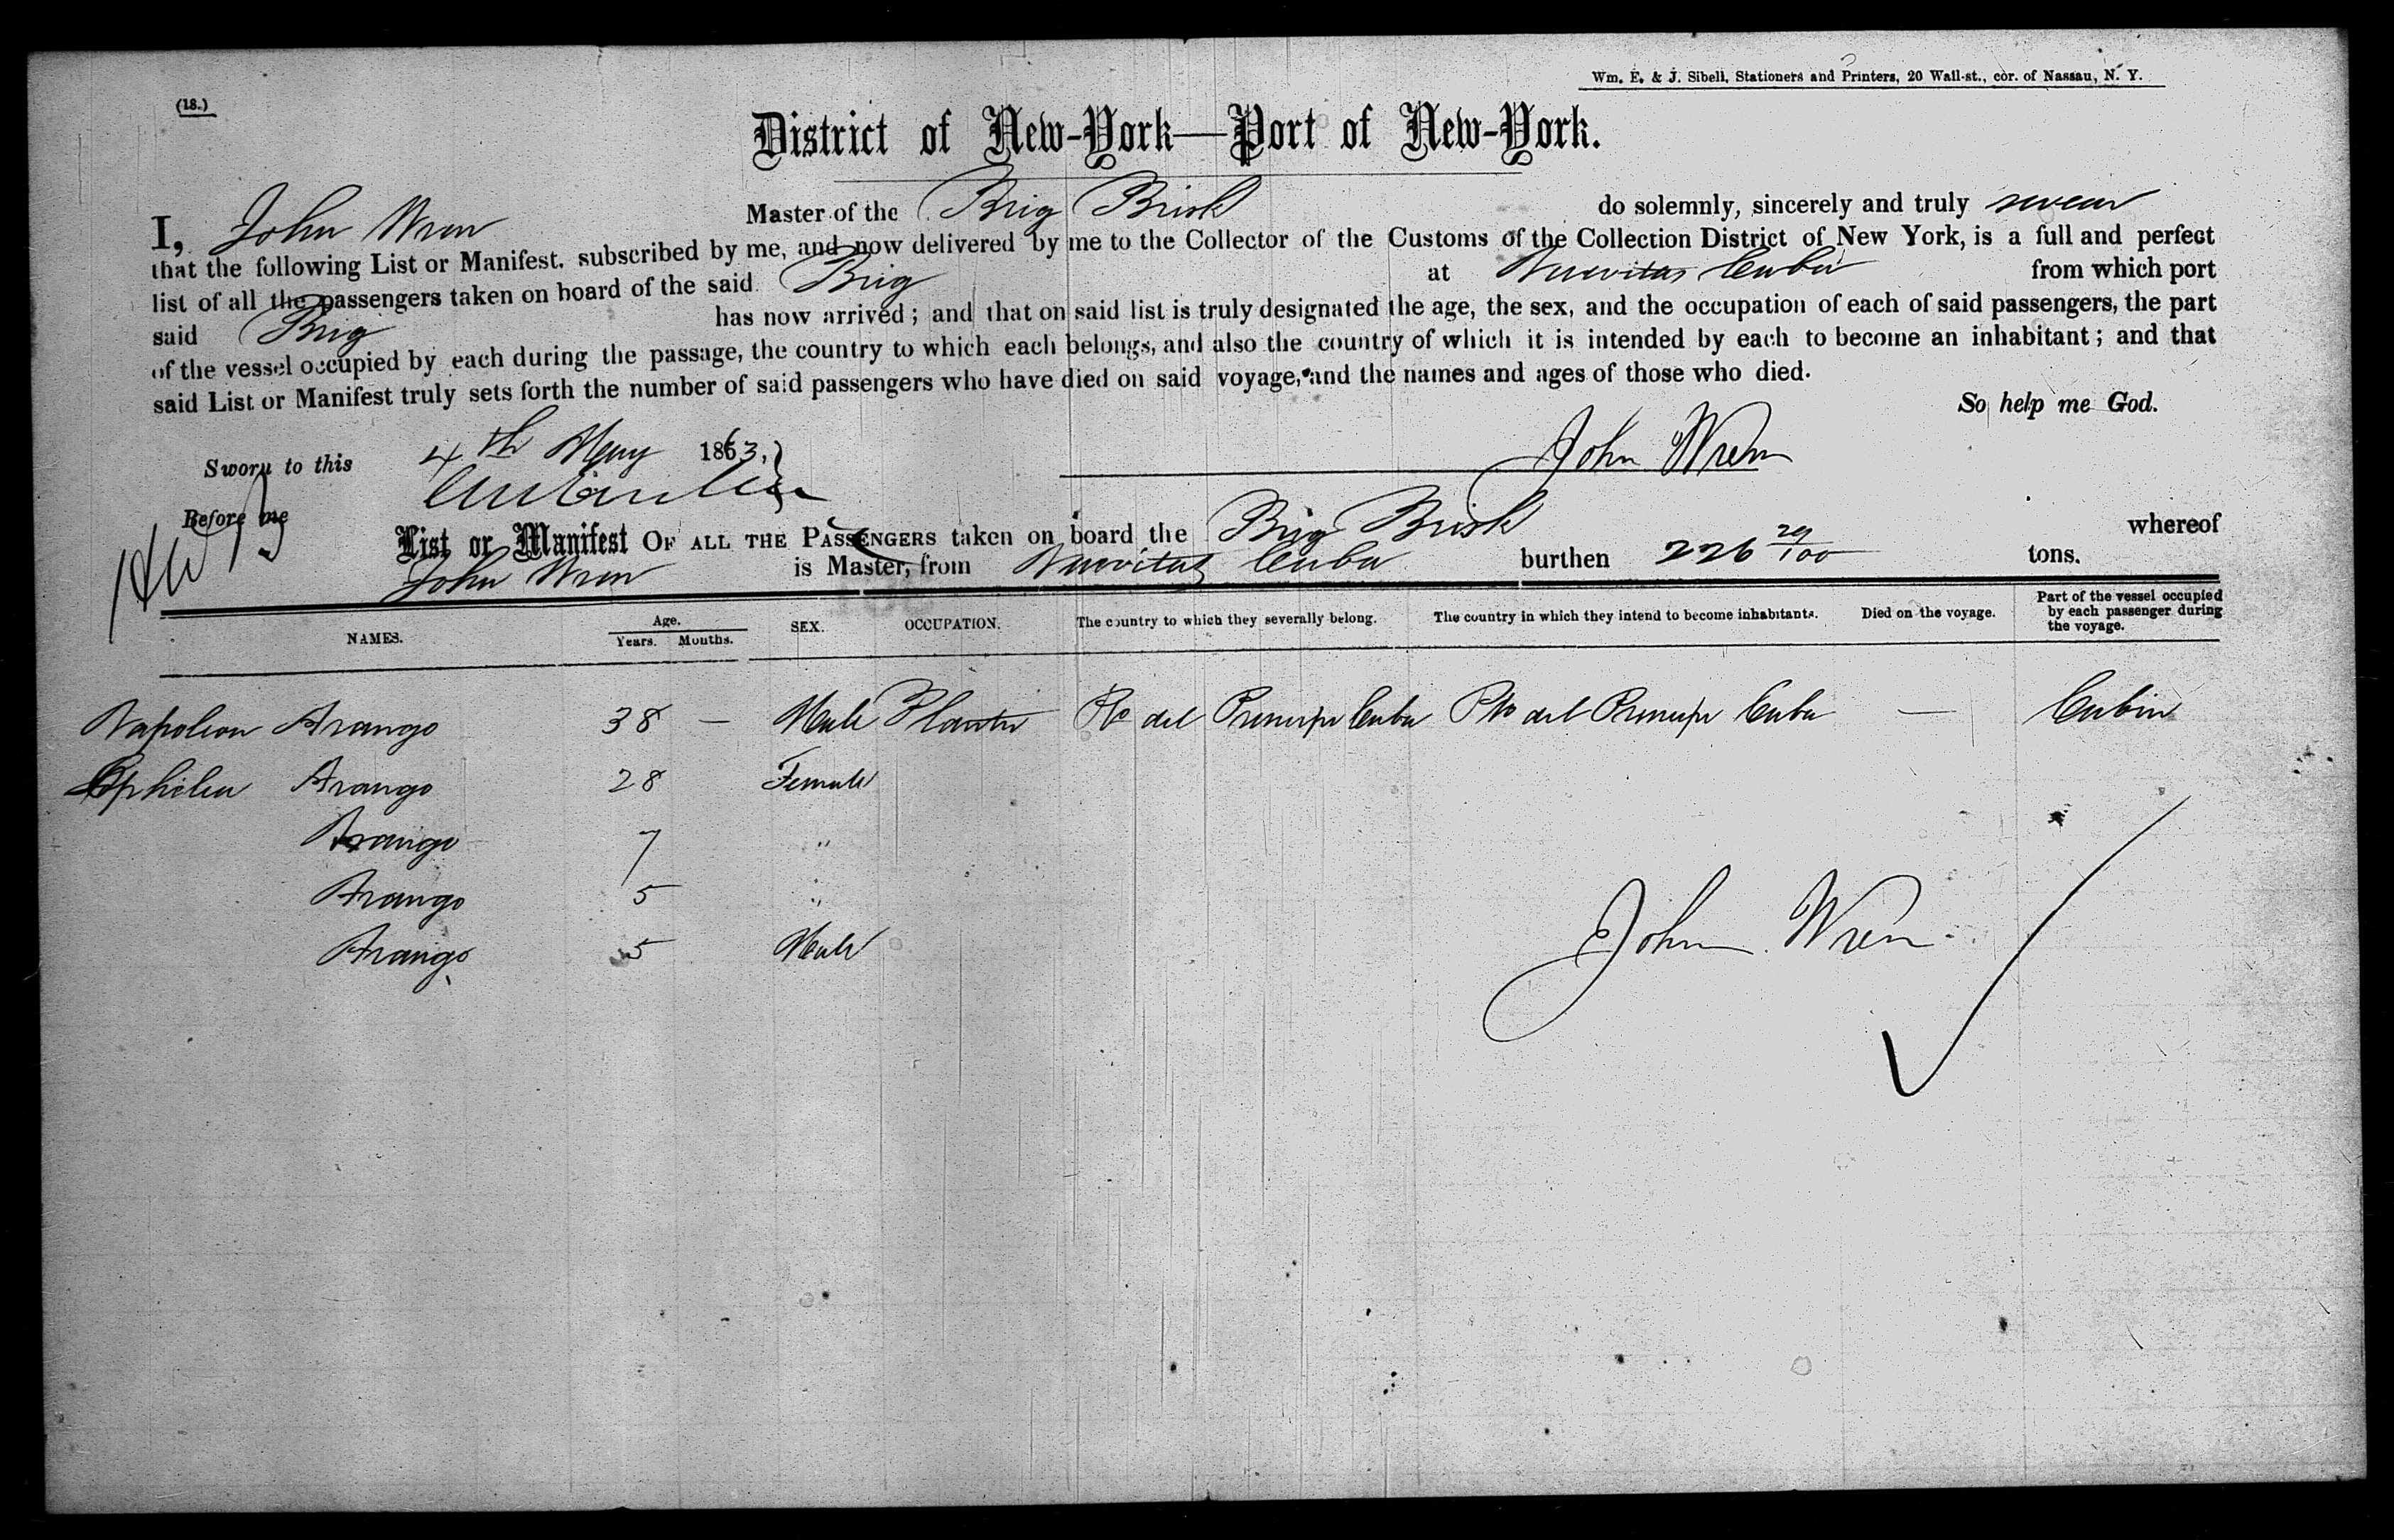 Wm. E. & J. Sibell, Stationers and Printers, 20 Wall-st., cor. of Nassau, N. Y.
(18.)
District of New-York—Port of New-York.
I, John Wren Master of the Brig Brisk do solemnly, sincerely and truly swear
that the following List or Manifest, subscribed by me, and now delivered by me to the Collector of the Customs of the Collection District of New York, is a full and perfect
list of all the passengers taken on board of the said Brig at Nuevitas Cuba from which port
said Brig has now arrived; and that on said list is truly designated the age, the sex, and the occupation of each of said passengers, the part
of the vessel occupied by each during the passage, the country to which each belongs, and also the country of which it is intended by each to become an inhabitant; and that
said List or Manifest truly sets forth the number of said passengers who have died on said voyage, and the names and ages of those who died.
So help me God.
Sworn to this 4th May 1863, John Wren
Before me
List or Manifest OF ALL THE PASSENGERS taken on board the Brig Brisk whereof
John Wren is Master, from Nuevitas Cuba burthen 226 29/100 tons.
NAMES. Age. Years. Months. SEX. OCCUPATION. The country to which they severally belong. The country in which they intend to become inhabitants. Died on the voyage. Part of the vessel occupied by each passenger during the voyage.
Napoleon Arango 38 — Male Planter Pto del Principe Cuba Pto del Principe Cuba — Cabin
Ophelia Arango 28 Female
Arango 7 "
Arango 5 "
Arango 5 Male
John Wren